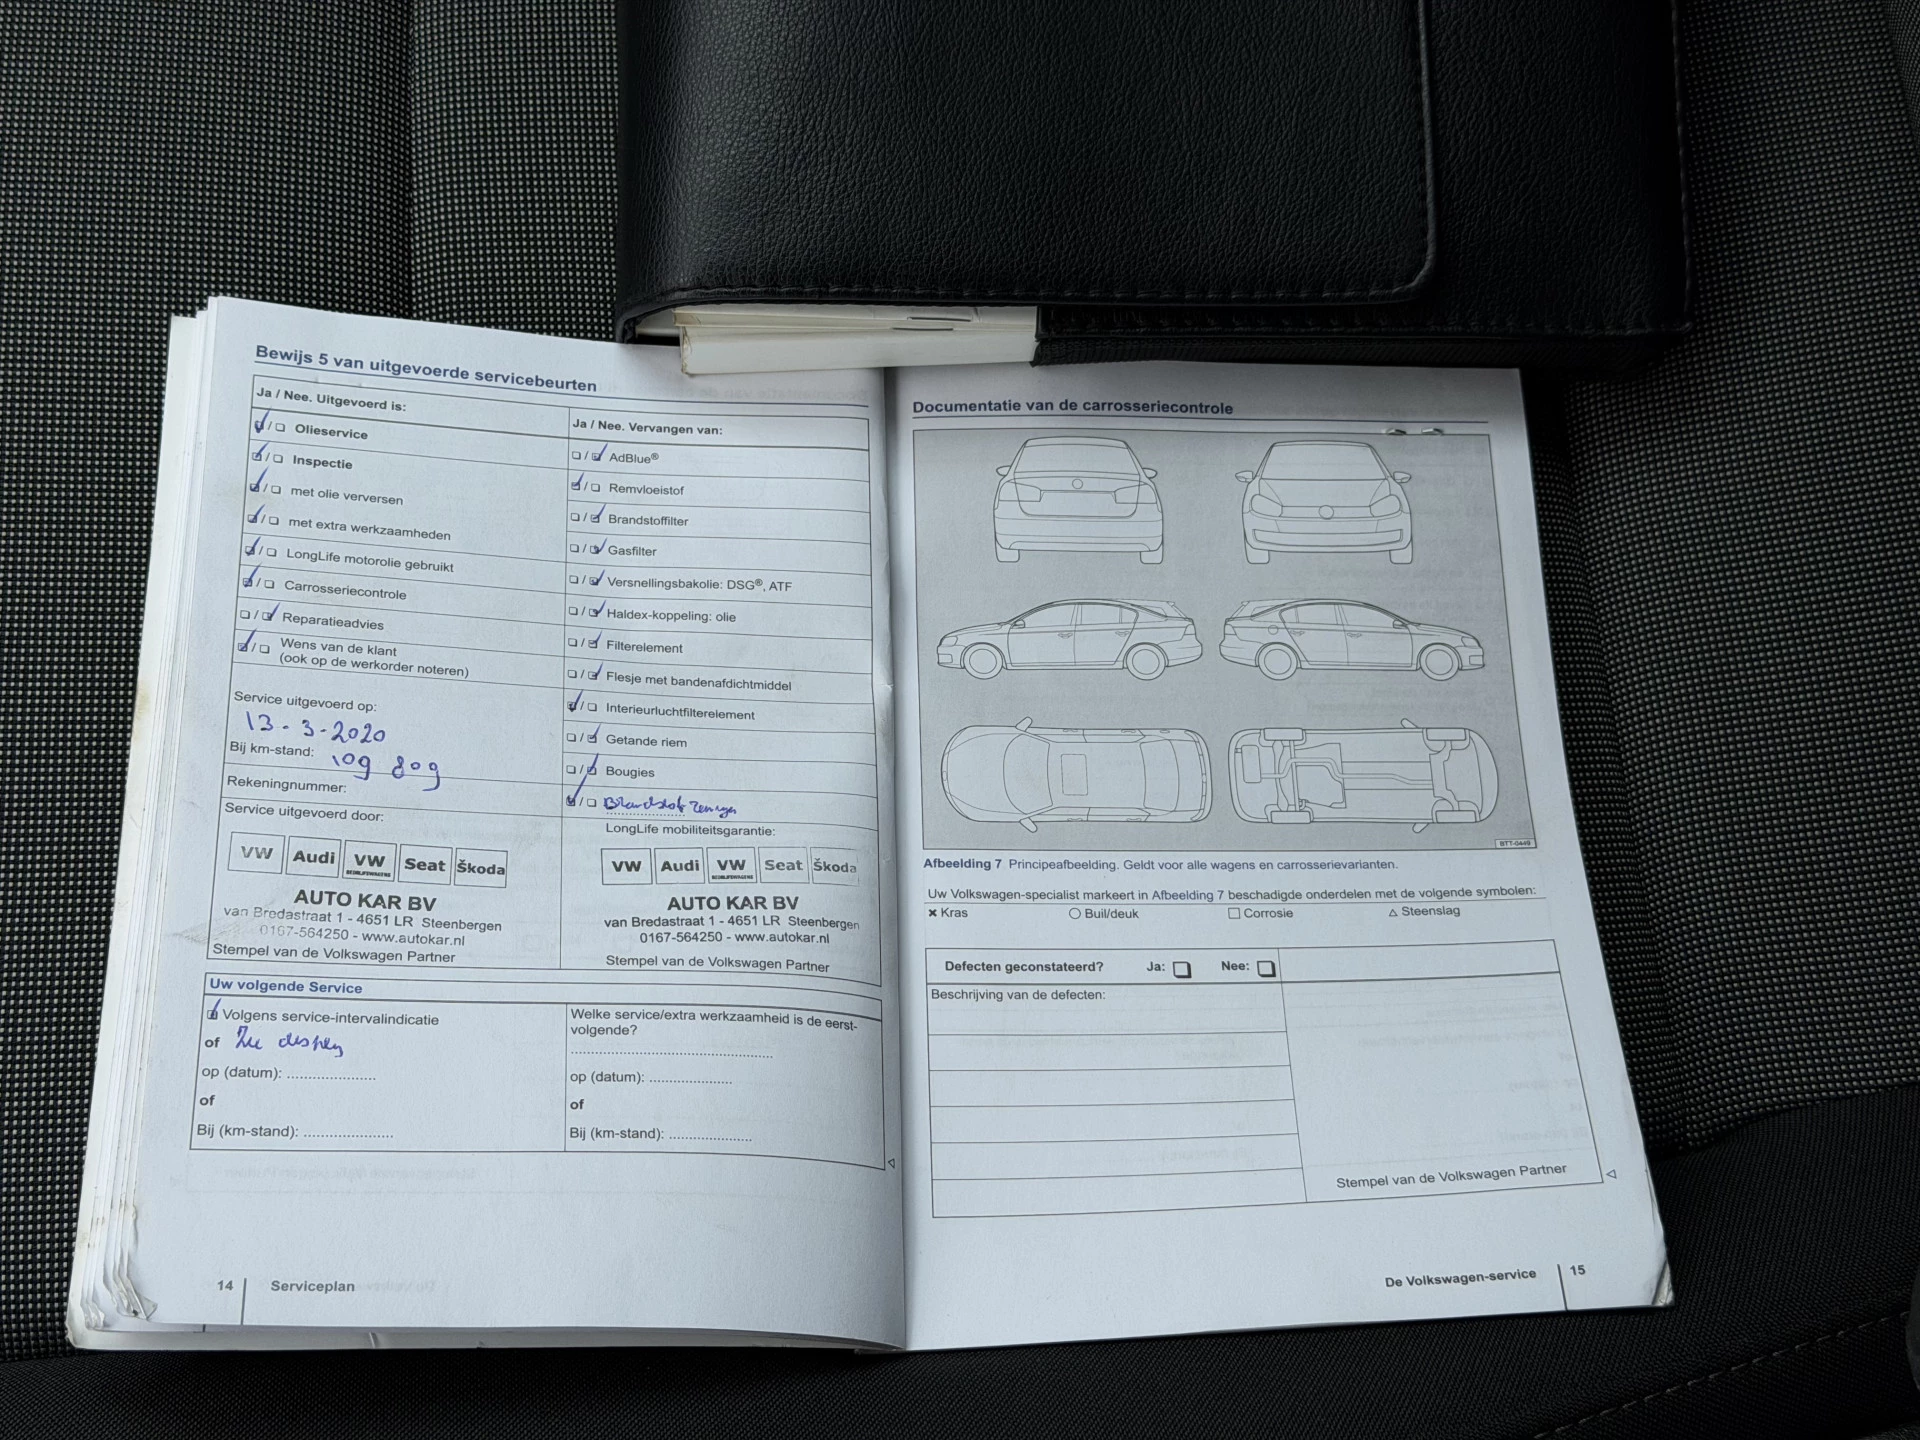 Bewijs 5 van uitgevoerde servicebeurten
Ja / Nee. Uitgevoerd is:
Olieservice
Inspectie
met olie verversen
met extra werkzaamheden
LongLife motorolie gebruikt
Carrosseriecontrole
Reparatieadvies
Wens van de klant
(ook op de werkorder noteren)
Service uitgevoerd op:
13-3-2020
Bij km-stand: 109 809
Rekeningnummer:
Service uitgevoerd door:
VW Audi VW Seat Škoda
BEDRIJFSWAGENS
AUTO KAR BV
van Bredastraat 1 - 4651 LR Steenbergen
0167-564250 - www.autokar.nl
Stempel van de Volkswagen Partner
Ja / Nee. Vervangen van:
AdBlue®
Remvloeistof
Brandstoffilter
Gasfilter
Versnellingsbakolie: DSG®, ATF
Haldex-koppeling: olie
Filterelement
Flesje met bandenafdichtmiddel
Interieurluchtfilterelement
Getande riem
Bougies
Brandstof
LongLife mobiliteitsgarantie:
VW Audi VW Seat Škoda
BEDRIJFSWAGENS
AUTO KAR BV
van Bredastraat 1 - 4651 LR Steenbergen
0167-564250 - www.autokar.nl
Stempel van de Volkswagen Partner
Uw volgende Service
Volgens service-intervalindicatie
of Zie display
op (datum): ......................
of
Bij (km-stand): ......................
Welke service/extra werkzaamheid is de eerst-
volgende?
op (datum): ....................
of
Bij (km-stand): ....................
14 Serviceplan
Documentatie van de carrosseriecontrole
BTT-0449
Afbeelding 7 Principeafbeelding. Geldt voor alle wagens en carrosserievarianten.
Uw Volkswagen-specialist markeert in Afbeelding 7 beschadigde onderdelen met de volgende symbolen:
Kras Buil/deuk Corrosie Steenslag
Defecten geconstateerd? Ja: Nee:
Beschrijving van de defecten:
Stempel van de Volkswagen Partner
De Volkswagen-service 15